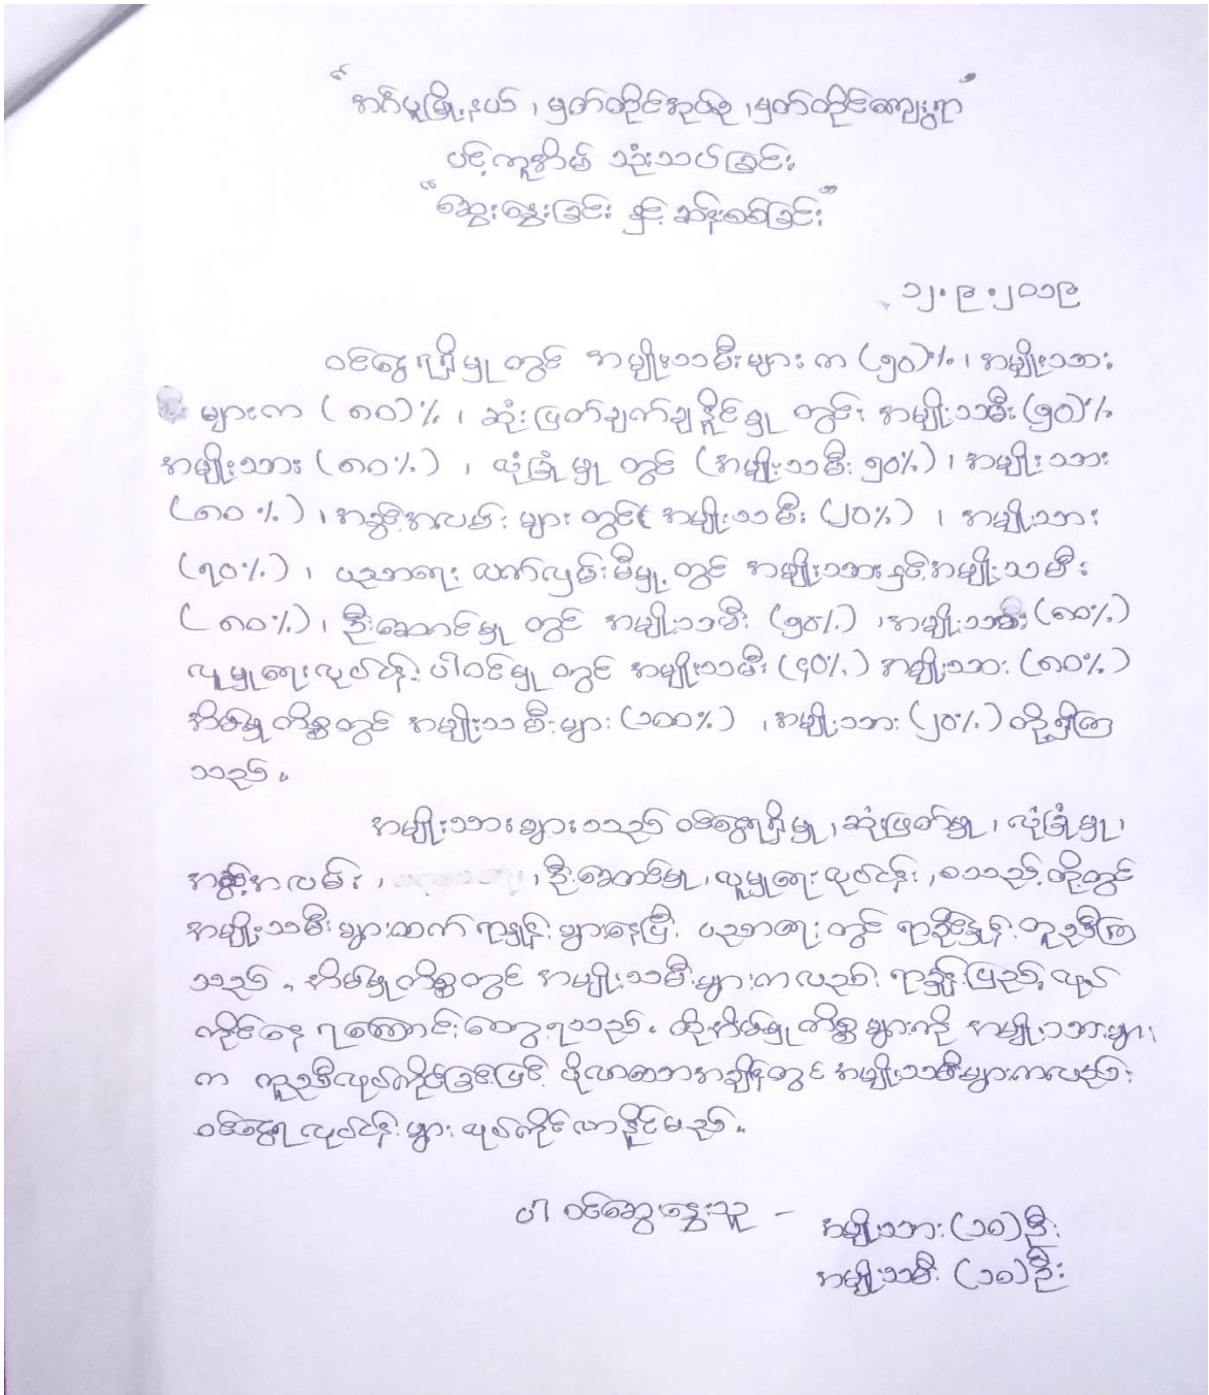 “အင်္ဂပူမြို့နယ် ၊ မှတ်တိုင်အုပ်စု ၊ မှတ်တိုင်ကျေးရွာ”
ပင့်ကူအိမ် သုံးသပ်ခြင်း
“ဆွေးနွေးခြင်း နှင့် ဆန်းစစ်ခြင်း”
၁၂.၉.၂၀၁၉
ဝင်ငွေရရှိမှု တွင် အမျိုးသမီးများ က (၅၀)% ၊ အမျိုးသား
များက (၈၀)% ၊ ဆုံးဖြတ်ချက်ချနိုင်မှု တွင် အမျိုးသမီး (၅၀)%
အမျိုးသား (၈၀%) ၊ လုံခြုံမှု တွင် (အမျိုးသမီး ၅၀%) ၊ အမျိုးသား
(၈၀%) ၊ အဆင့်အလမ်း များ တွင် အမျိုးသမီး (၂၀%) ၊ အမျိုးသား
(၇၀%) ၊ ပညာရေး လက်လှမ်းမီမှု တွင် အမျိုးသား နှင့် အမျိုးသမီး
(၈၀%) ၊ ဦးဆောင်မှု တွင် အမျိုးသမီး (၅၀%) ၊ (၈၀%)
လူမှုရေးလုပ်ငန်း ပါဝင်မှု တွင် အမျိုးသမီး (၄၀%) အမျိုးသား (၈၀%)
အိမ်မှုကိစ္စတွင် အမျိုးသမီးများ (၁၀၀%) ၊ အမျိုးသား (၂၀%) တို့ရှိကြ
သည် ။
အမျိုးသားများသည် ဝင်ငွေရရှိမှု ၊ ဆုံးဖြတ်မှု ၊ လုံခြုံမှု ၊
အဆင့်အလမ်း ၊ ၊ ဦးဆောင်မှု ၊ လူမှုရေးလုပ်ငန်း ၊ စသည့် တို့တွင်
အမျိုးသမီးများထက် ရာနှုန်း များနေပြီး ပညာရေး တွင် ရာခိုင်နှုန်း တူညီကြ
သည် ။ အိမ်မှုကိစ္စတွင် အမျိုးသမီးများကလည်း ရာနှုန်းပြည့် လုပ်
ကိုင်နေ ရကြောင်း တွေ့ရသည် ။ ထိုအိမ်မှုကိစ္စများကို အမျိုးသားများ
က ကူညီလုပ်ကိုင်ခြင်းဖြင့် ပိုလာသောအချိန်တွင် အမျိုးသမီးများကလည်း
ဝင်ငွေရ လုပ်ငန်းများ လုပ်ကိုင်လာနိုင်မည် ။
ပါဝင်ဆွေးနွေးသူ – အမျိုးသား (၁၈) ဦး
အမျိုးသမီး (၁၈) ဦး